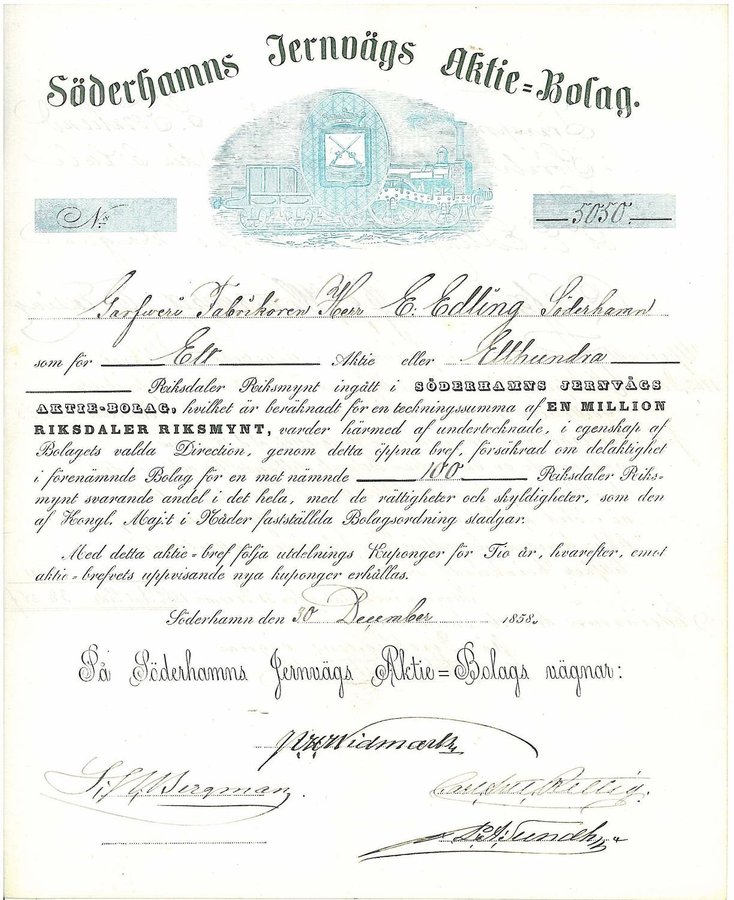 Söderhamns Jernvägs Aktie=Bolag.
No 5050.
Garfweri Fabrikören Herr E. Edling Söderhamn
som för Ett Aktie eller Etthundra
Riksdaler Riksmynt ingått i SÖDERHAMNS JERNVÄGS
AKTIE-BOLAG, hvilket är beräknadt för en teckningssumma af EN MILLION
RIKSDALER RIKSMYNT, varder härmed af undertecknade, i egenskap af
Bolagets valda Direction, genom detta öppna bref, försäkrad om delaktighet
i förenämnde Bolag för en mot nämnde 100 Riksdaler Riks=
mynt svarande andel i det hela, med de rättigheter och skyldigheter, som den
af Kongl. Maj:t i Nåder fastställda Bolagsordning stadgar.
Med detta aktie=bref följa utdelnings Kuponger för Tio år, hvarefter, emot
aktie=brefvets uppvisande nya kuponger erhållas.
Söderhamn den 30 December 1858.
På Söderhamns Jernvägs Aktie=Bolags vägnar:
Widmark
Bergman
Rettig.